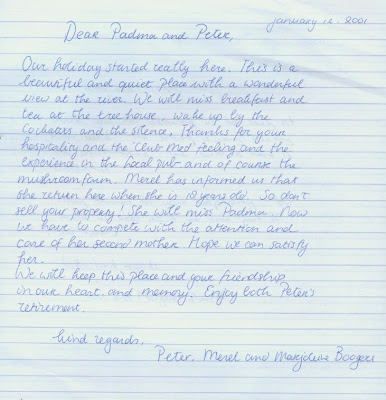 january 12. 2001
Dear Padma and Peter,
Our holiday started really here. This is a
beautiful and quiet place with a wonderful
view at the river. We will miss breakfast and
tea at the tree house, wake up by the
Cockatoos and the silence. Thanks for your
hospitality and the 'Club Med' feeling and the
experience in the local pub and of course the
mushroom farm. Merel has informed us that
she return here when she is 18 years old. So don't
sell your property! She will miss Padma. Now
we have to compete with the attention and
care of her second mother. Hope we can satisfy
her.
We will keep this place and your friendship
in our heart and memory. Enjoy both Peter's
retirement.
kind regards,
Peter, Merel and Marjoleine Boogers